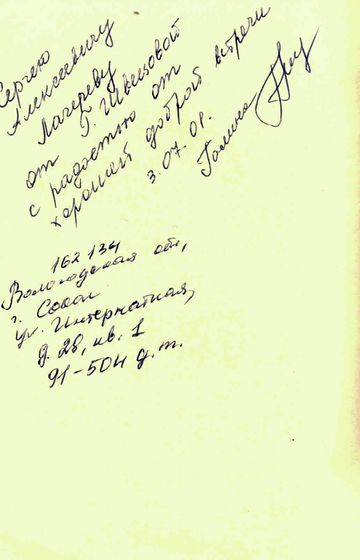 Сергею
Алексеевичу
Лагереву
от Г. Швецовой
с радостью от
хорошей доброй встречи
3.07.01.
Галина
162134
Вологодская обл,
г. Сокол
ул. Интернатная,
д. 28, кв. 1
91-504 д.т.